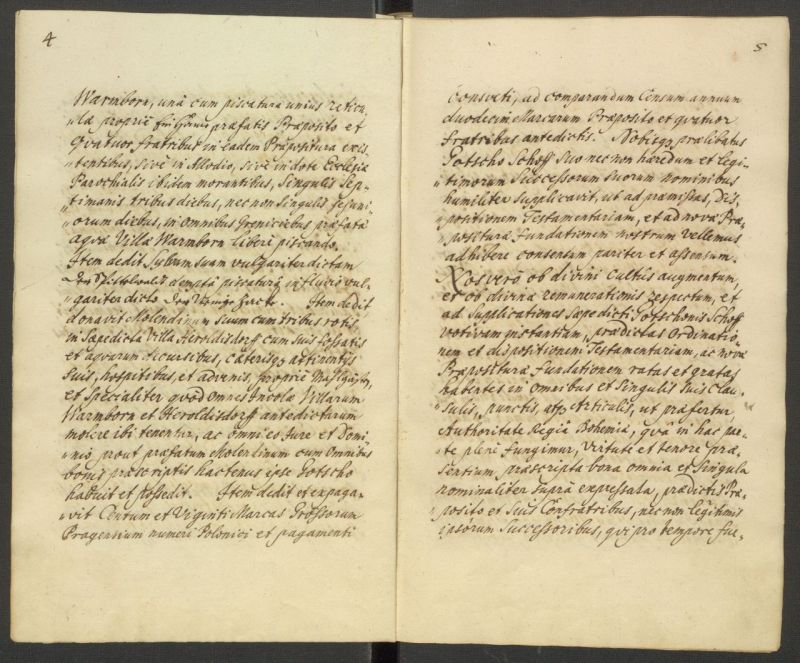 4
Warmborn, unà cum piscatura unius reticu„
„la propriè præfatis Præposito et
Qvatuor, fratribus in eadem Præpositura exis„
„tentibus, sivè in Allodio, sivè in dote Ecclesiæ
Parochialis ibidem morantibus, Singulis Sep„
„timanis tribus diebus, nec non Singulis jejuni„
„orum diebus, in Omnibus Greniciebus præfatæ
aqvæ Villæ Warmborn liberè piscando.
Item dedit Sylvam suam vulgariter dictam
demptâ piscaturâ in fluvio vul„
„gariter dicto Item dedit
donavit Molendinum suum cum tribus rotis
in Sæpedicta Villa Heroldisdorff cum suis fossatis
et aqvarum decursibus, cæterisq3 attinentiis
Suis, hospitibus, et advenis, propriè
et Specialiter qvod Omnes Incolæ Villarum
Warmborn et Heroldisdorff antedictarum
molere ibi tenentur, ac omni eo Jure et Domi„
„nio, prout præfatum Molendinum cum Omnibus
bonis præscriptis hactenus ipse Gotscho
habuit et possedit. Item dedit et expaga„
„vit Centum et Viginti Marcas Grossorum
Pragensium numeri Polonici et pagamenti
5
Consveti, ad comparandum Censum annuum
duodecim Marcarum Præposito et qvatuor
fratribus antedictis. Nobisq3 prælibatus
Gotscho Schoff Suo nec non hæredum et legi„
„timorum Successorum suorum nominibus
humiliter Supplicavit, ut ad præmissas, Dis„
„positionem Testamentariam, et ad novæ Præ„
„posituræ fundationem nostrum Vellemus
adhibere consensum pariter et assensum.
Nos verò ob divini Cultûs augmentum,
et ob divinæ remunerationis respectum, et
ad Supplicationes Sæpedicti Gotschonis Schoff
votivam instantiam, prædictas Ordinatio„
nem et dispositionem Testamentariam, ac novæ
Præposituræ fundationem ratas et gratas
habentes in Omnibus et Singulis suis Clau„
„sulis, punctis, atq3 Articulis, ut præfertur
Authoritate Regia Bohemiæ, qvâ in hac par„
„te plenè fungimur, Virtute et tenore præ„
sentium, præscripta bona omnia et Singula
nominaliter suprà expressata, prædictis Præ„
„posito et Suis Confratribus, nec non legitimis
ipsorum Successoribus, qvi pro tempore fue„